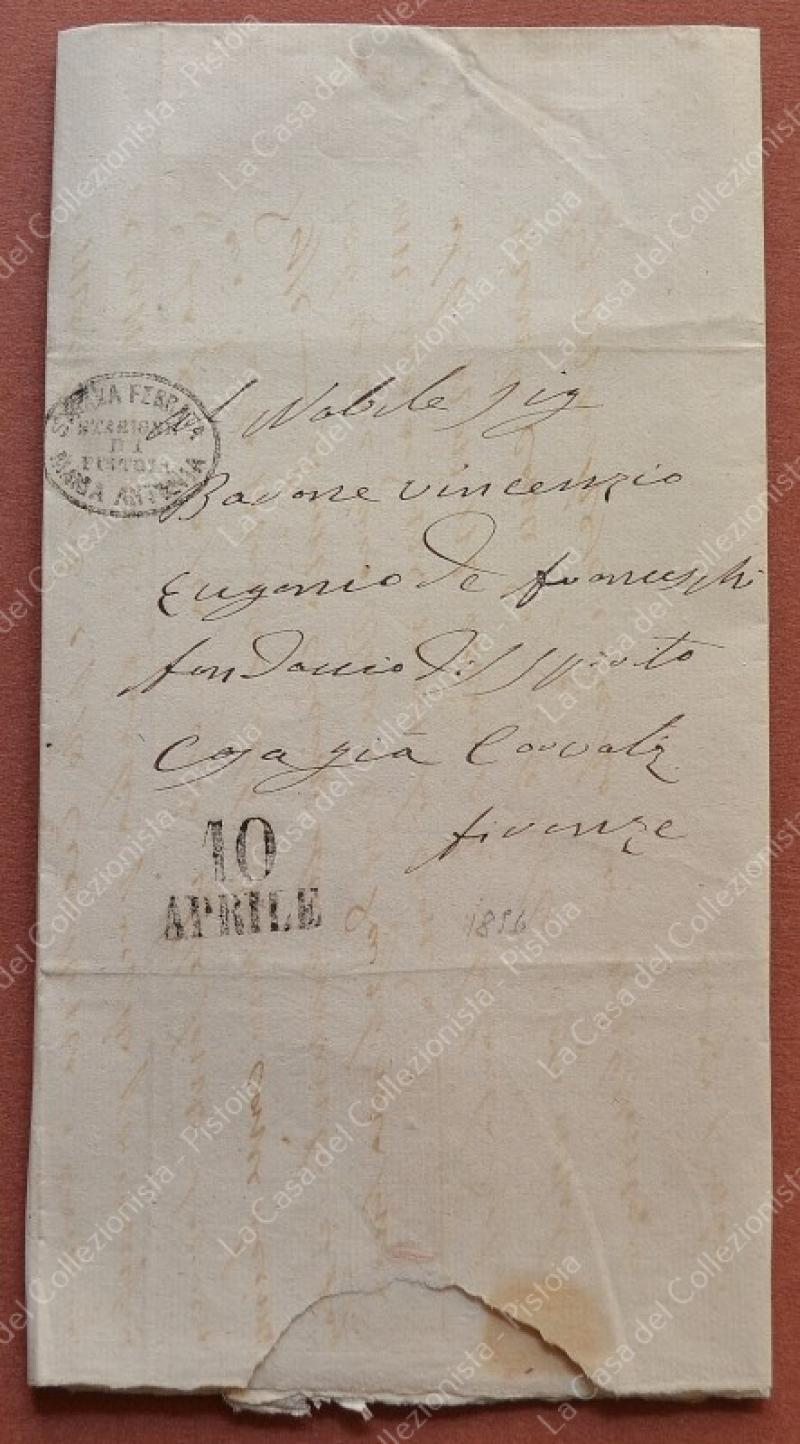 STRADA FERRATA
STAZIONE
DI
PISTOIA
MARIA ANTONIA
Al Nobile Sig
Barone Vincenzio
Eugenio de franceschi
fondaccio di S Spirito
Casa già
firenze
10
APRILE
1856
La Casa del Collezionista - Pistoia